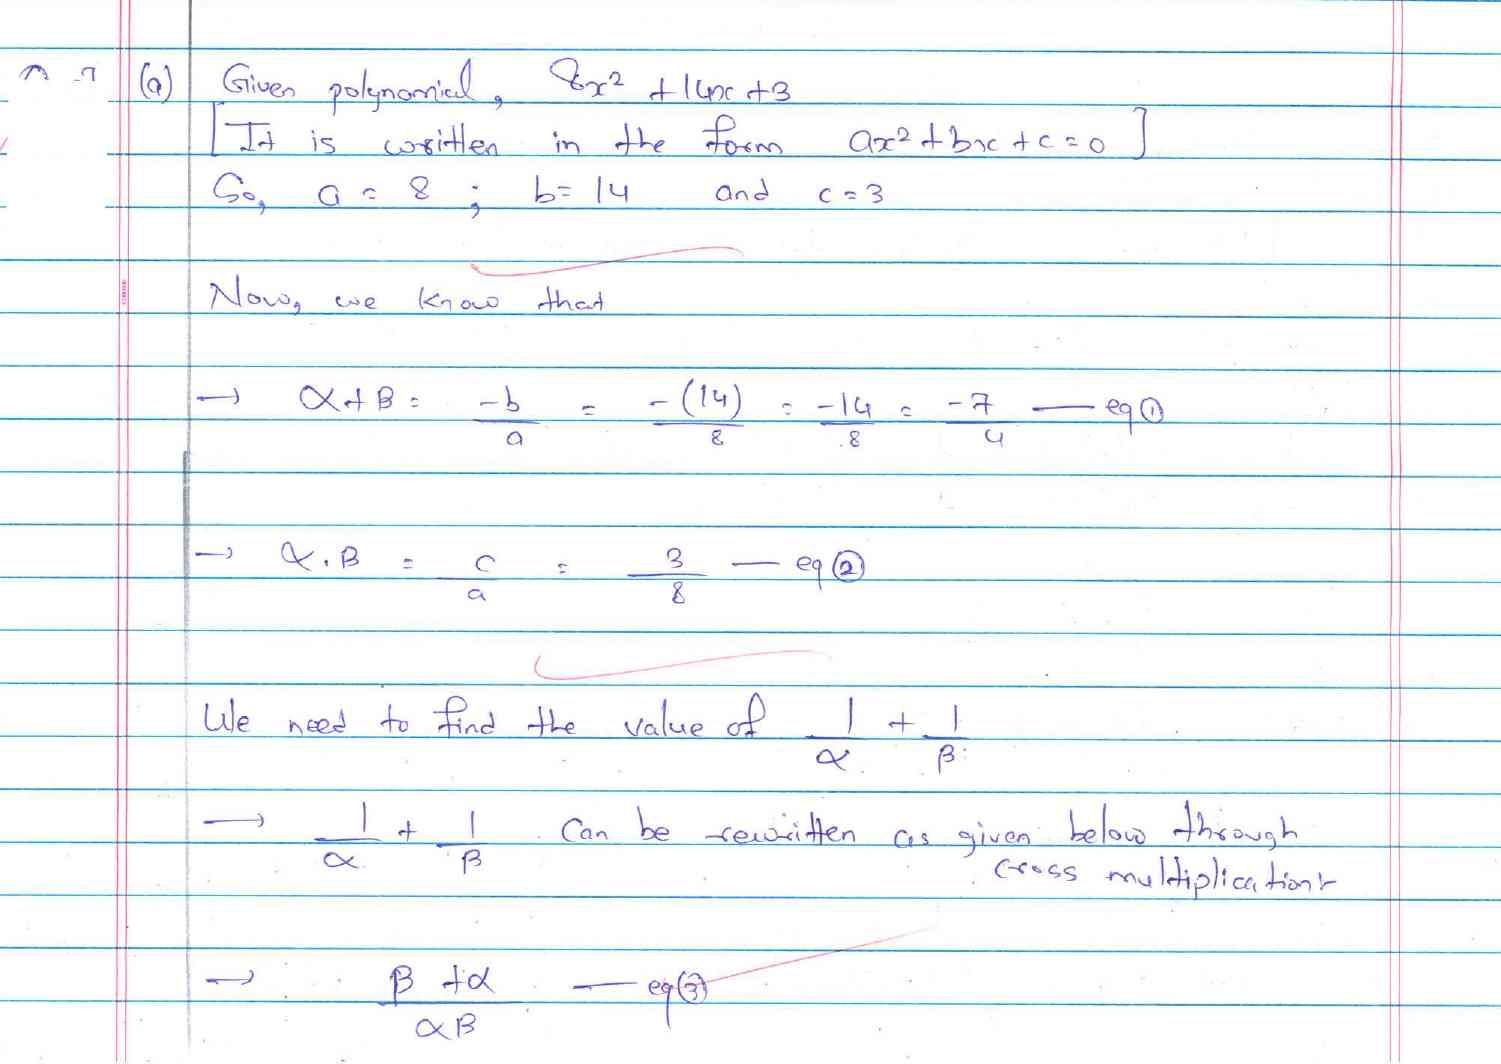 (a) Given polynomial, 8x² + 14x + 3
[It is written in the form ax² + bx + c = 0]
So, a = 8 ; b = 14 and c = 3
Now, we know that
→ α + β = -b/a = -(14)/8 = -14/8 = -7/4 — eq ①
→ α . β = c/a = 3/8 — eq ②
We need to find the value of 1/α + 1/β
→ 1/α + 1/β can be rewritten as given below through
cross multiplication:-
→ β + α / αβ — eq ③